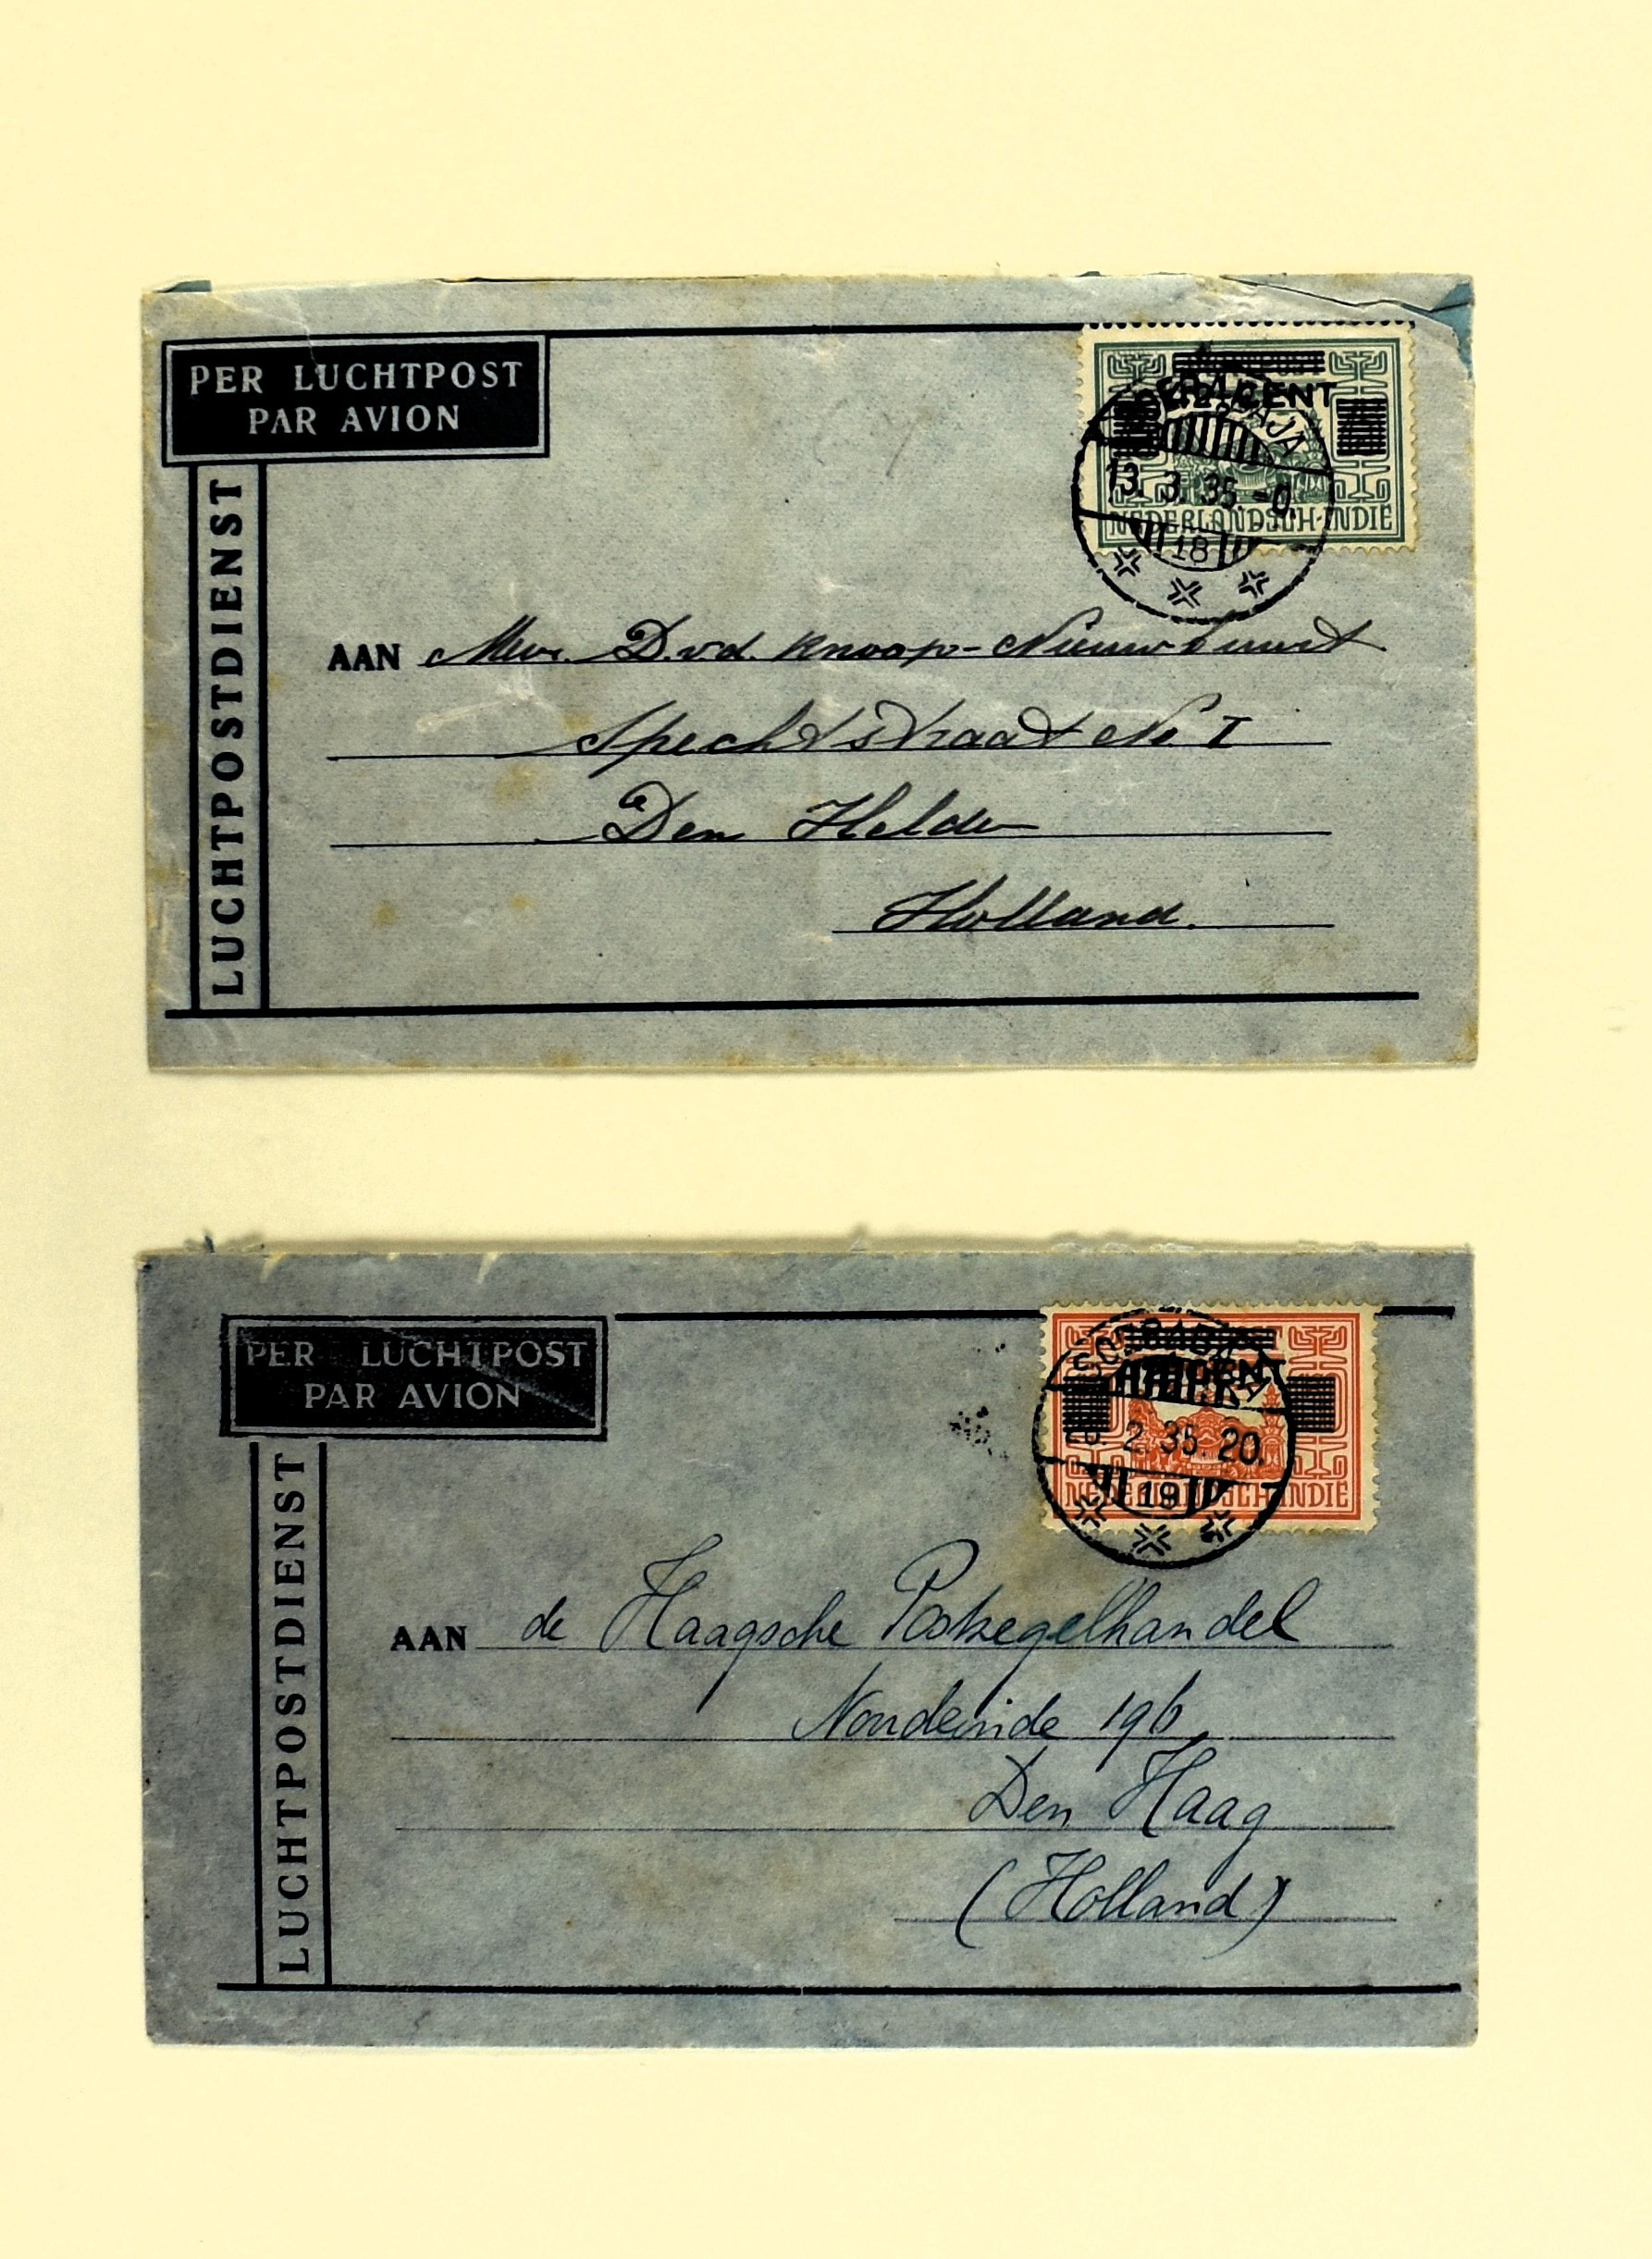 PER LUCHTPOST
PAR AVION
LUCHTPOSTDIENST
CENT
13. 3. 35.
NEDERLANDSCH-INDIE
18
AAN Mevr. D.v.d. Knoop-Nieuwbuurt
Spechtstraat No. I
Den Helder
Holland.
PER LUCHTPOST
PAR AVION
LUCHTPOSTDIENST
CENT
2. 35. 20.
NEDERLANDSCH-INDIE
19
AAN de Haagsche Postzegelhandel
Noordeinde 196
Den Haag
(Holland)